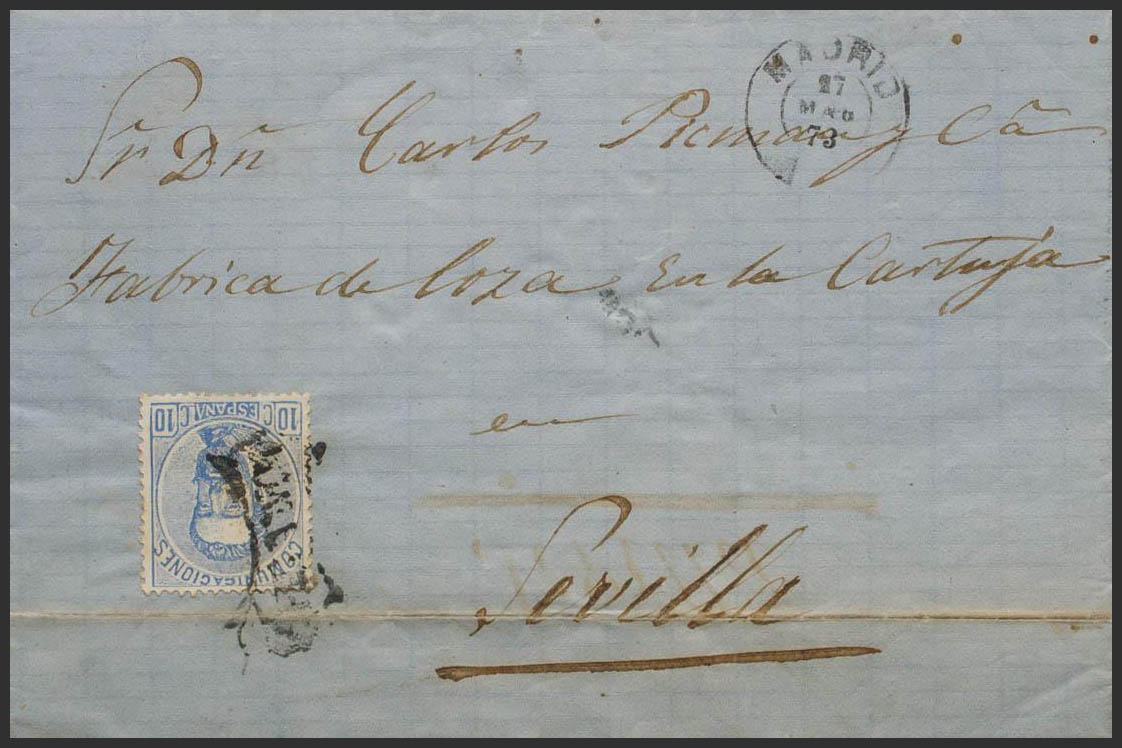 MADRID
27
MAR
73
Sr Dn Carlos Picman y Ca
Fabrica de loza en la Cartuja
en
Sevilla
10 C ESPAÑA C 10
COMUNICACIONES